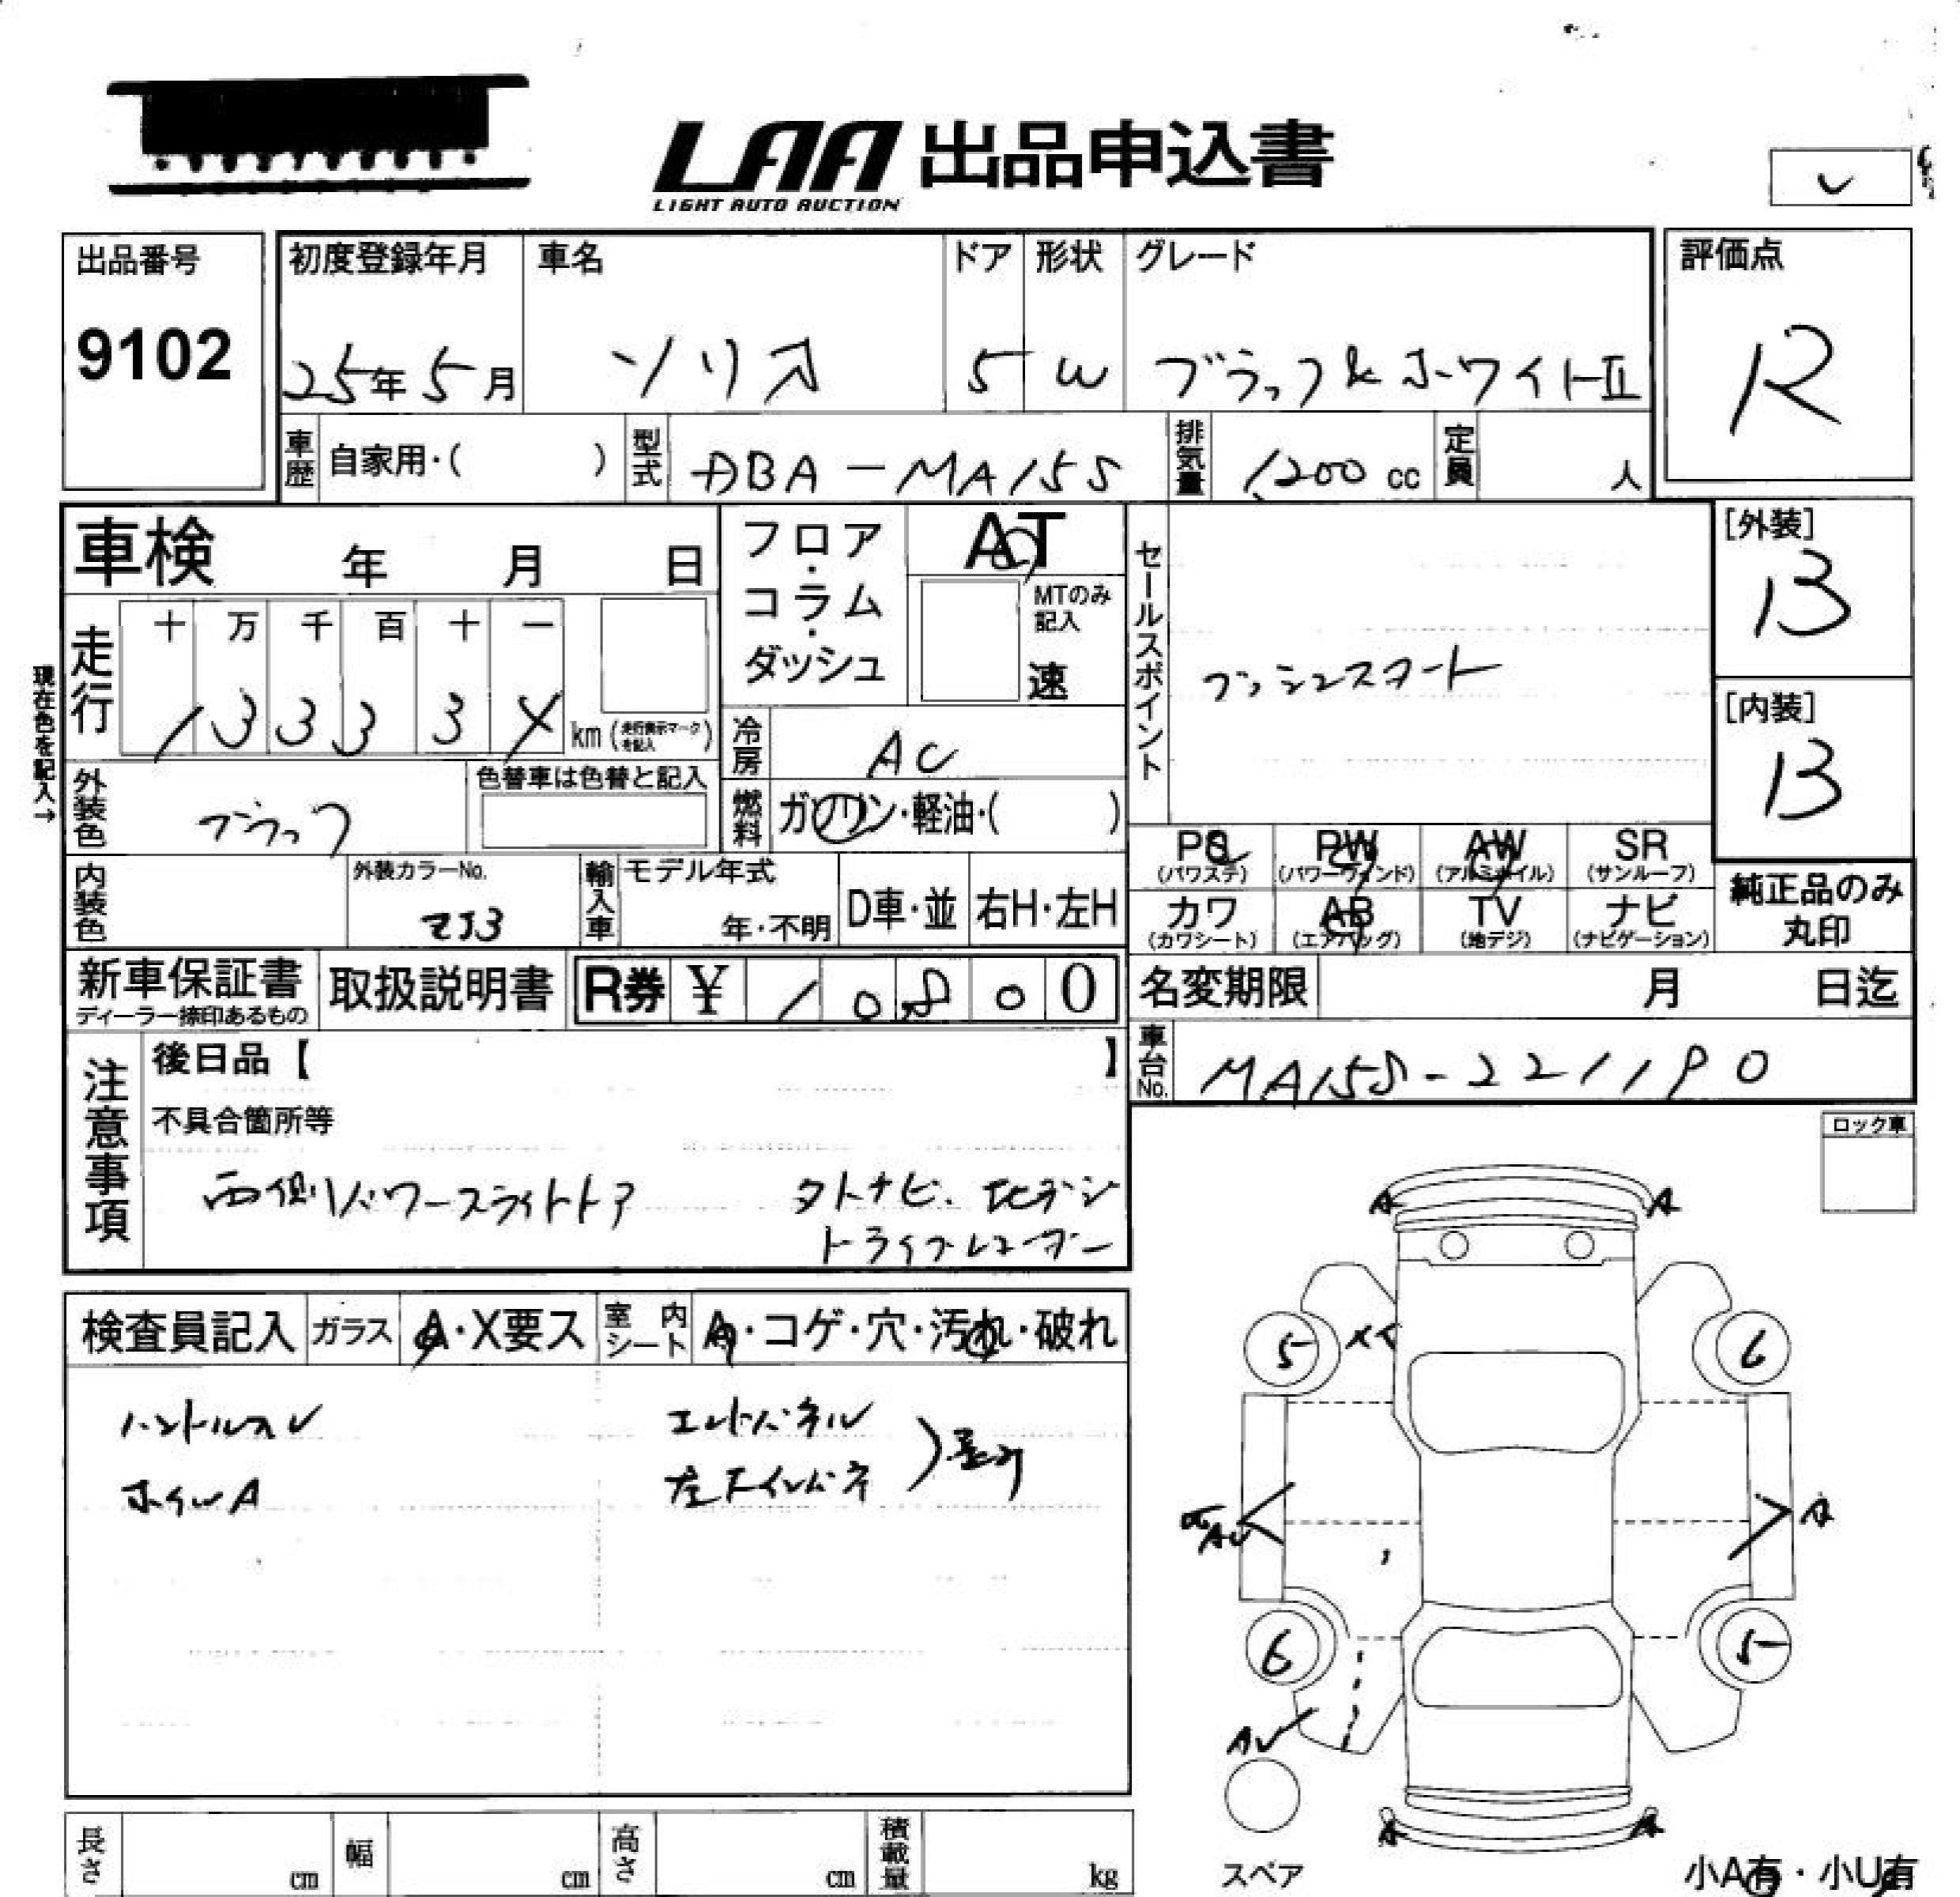 LAA 出品申込書
LIGHT AUTO AUCTION
出品番号
9102
初度登録年月
25年5月
車名
ソリオ
ドア
5
形状
W
グレード
ブラック&ホワイトII
評価点
R
車歴
自家用・( )
型式
DBA-MA15S
排気量
1,200 cc
定員
人
車検 年 月 日
フロア・コラム・ダッシュ
AT
MTのみ記入
速
セールスポイント
プッシュスタート
[外装]
B
[内装]
B
現在色を記入→
走行
十 万 千 百 十 一
1 3 3 3 3 X
km (走行表示マークを記入)
冷房
AC
外装色
ブラック
色替車は色替と記入
燃料
ガソリン・軽油・( )
PS
(パワステ)
PW
(パワーウィンド)
AW
(アルミホイル)
SR
(サンルーフ)
内装色
外装カラーNo.
ZJ3
輸入車
モデル年式
年・不明
D車・並
右H・左H
カワ
(カワシート)
AB
(エアバッグ)
TV
(地デジ)
ナビ
(ナビゲーション)
純正品のみ
丸印
新車保証書
ディーラー捺印あるもの
取扱説明書
R券 ¥ 1 0 8 0 0
名変期限 月 日迄
車台No.
MA15S-221190
注意事項
後日品【 】
不具合箇所等
両側パワースライドドア
外ナビ、地デジ
ドライブレコーダー
ロック車
検査員記入
ガラス
A・X要ス
室内シート
A・コゲ・穴・汚れ・破れ
ハンドルスレ
ホイルA
エンドパネル
左
A
A
5
6
A
6
5
AU
A
A
スペア
小A有・小U有
長さ cm
幅 cm
高さ cm
積載量 kg